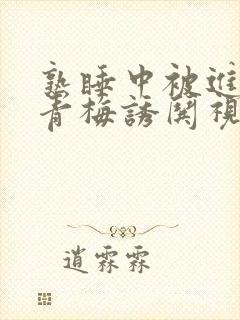 熟睡中被進
青梅誘関視
逍霖霖